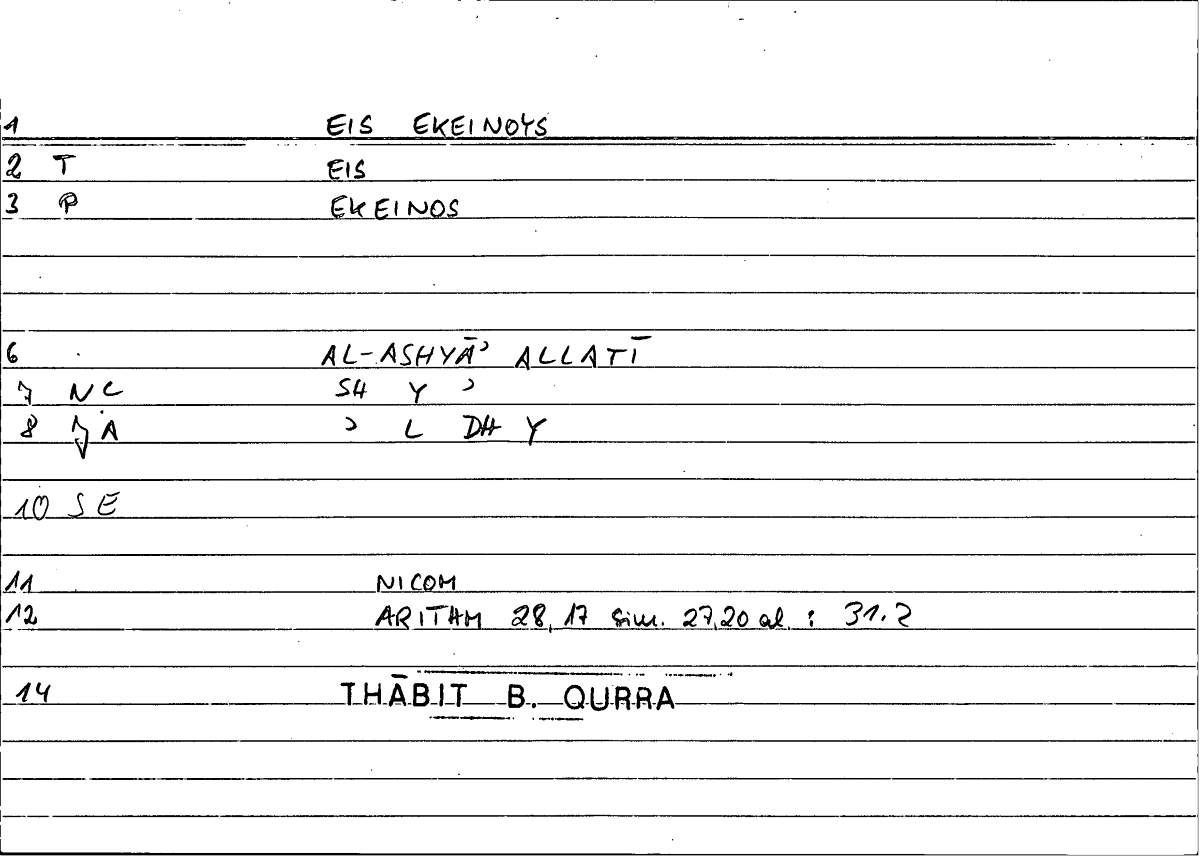 1 EIS EKEINOYS
2 T EIS
3 P EKEINOS
6 AL-ASHYĀʾ ALLATĪ
7 NC SH Y ʾ
8 A ʾ L DH Y
10 SE
11 NICOM
12 ARITHM 28,17 sim. 27,20 al : 31.2
14 THĀBIT B. QURRA